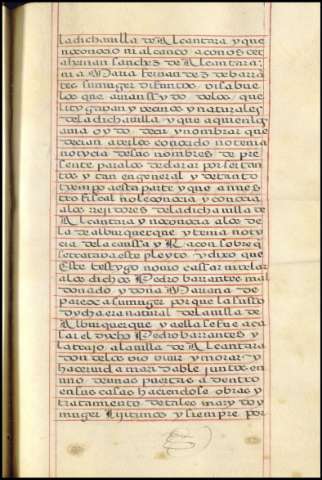 la dicha villa de Alcantara y que
no conocio ni alcanço a conoscer
a hernan sanchez de Alcantara
ni a Maria hernandez de barra
tes su muger difuntos visabue
los que avian sydo de los que
litygavan y vecinos y naturales
de la dicha villa y que a quien los
avia oydo decir y nombrar que
decian averlos conocido no tenia
notycia de sus nombres de pre
sente para los declarar por ser tan
tos y tan en general y de tanto
tyempo a esta parte y que a nues
tro fiscal no le conocia y conocia
a los rejidores de la dicha villa de
Alcantara y no conocia a los de
la de alburquerque y tenia noty
cia de la caussa y Racon sobre q̃
se tratava este pleyto y dixo que
Este testygo no vio cassar ni velar
a los dichos Pedro barrantes mal
donado y doña Maria de
paredes a su muger porque la susso
dycha era natural de la villa de
Alburquerque y a ella se fue a ca
sar el dycho Pedro barrantes y
la trajo a la villa de Alcantara
donde los vio vivir y morar y
hacer vida maridable juntos en
uno de unas puertas a dentro
en sus casas haciendose obras y
tratamiento de tales marydo y
muger lijitimos y siempre por